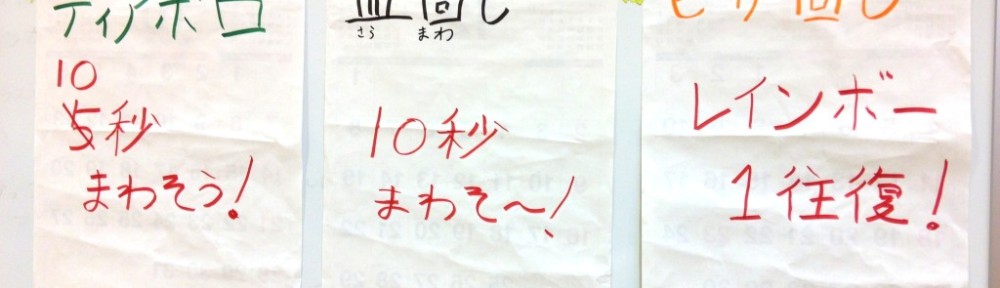 ディアボロ
10
5秒
まわそう!
皿回し
さら まわ
10秒
まわそ〜!
ピザ回し
レインボー
1往復!